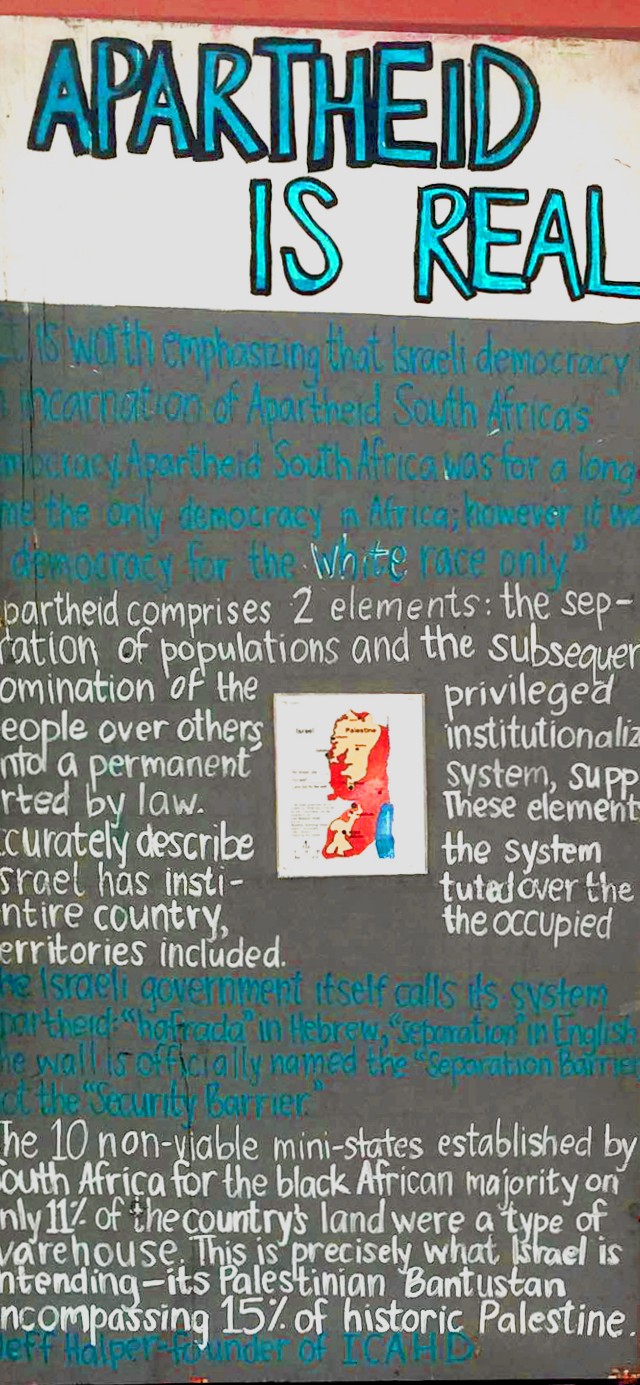 APARTHEID
IS REAL
is worth emphasizing that Israeli democracy
incarnation of Apartheid South Africa's
mocracy. Apartheid South Africa was for a long
me the only democracy in Africa; however it w
democracy for the white race only"
partheid comprises 2 elements: the sep-
ration of populations and the subsequen
omination of the privileged
eople over others institutionaliz
nto a permanent system, supp
rted by law. These element
ccurately describe the system
srael has insti- tuted over the
ntire country, the occupied
erritories included.
Israel Palestine
he Israeli government itself calls its system
partheid: "hafrada" in Hebrew, "separation" in English
he wall is officially named the "Separation Barrier
ot the "Security Barrier."
The 10 non-viable mini-states established by
outh Africa for the black African majority on
nly 11% of the country's land were a type of
warehouse. This is precisely what Israel is
ntending-its Palestinian Bantustan
ncompassing 15% of historic Palestine.
Jeff Halper-founder of ICAHD